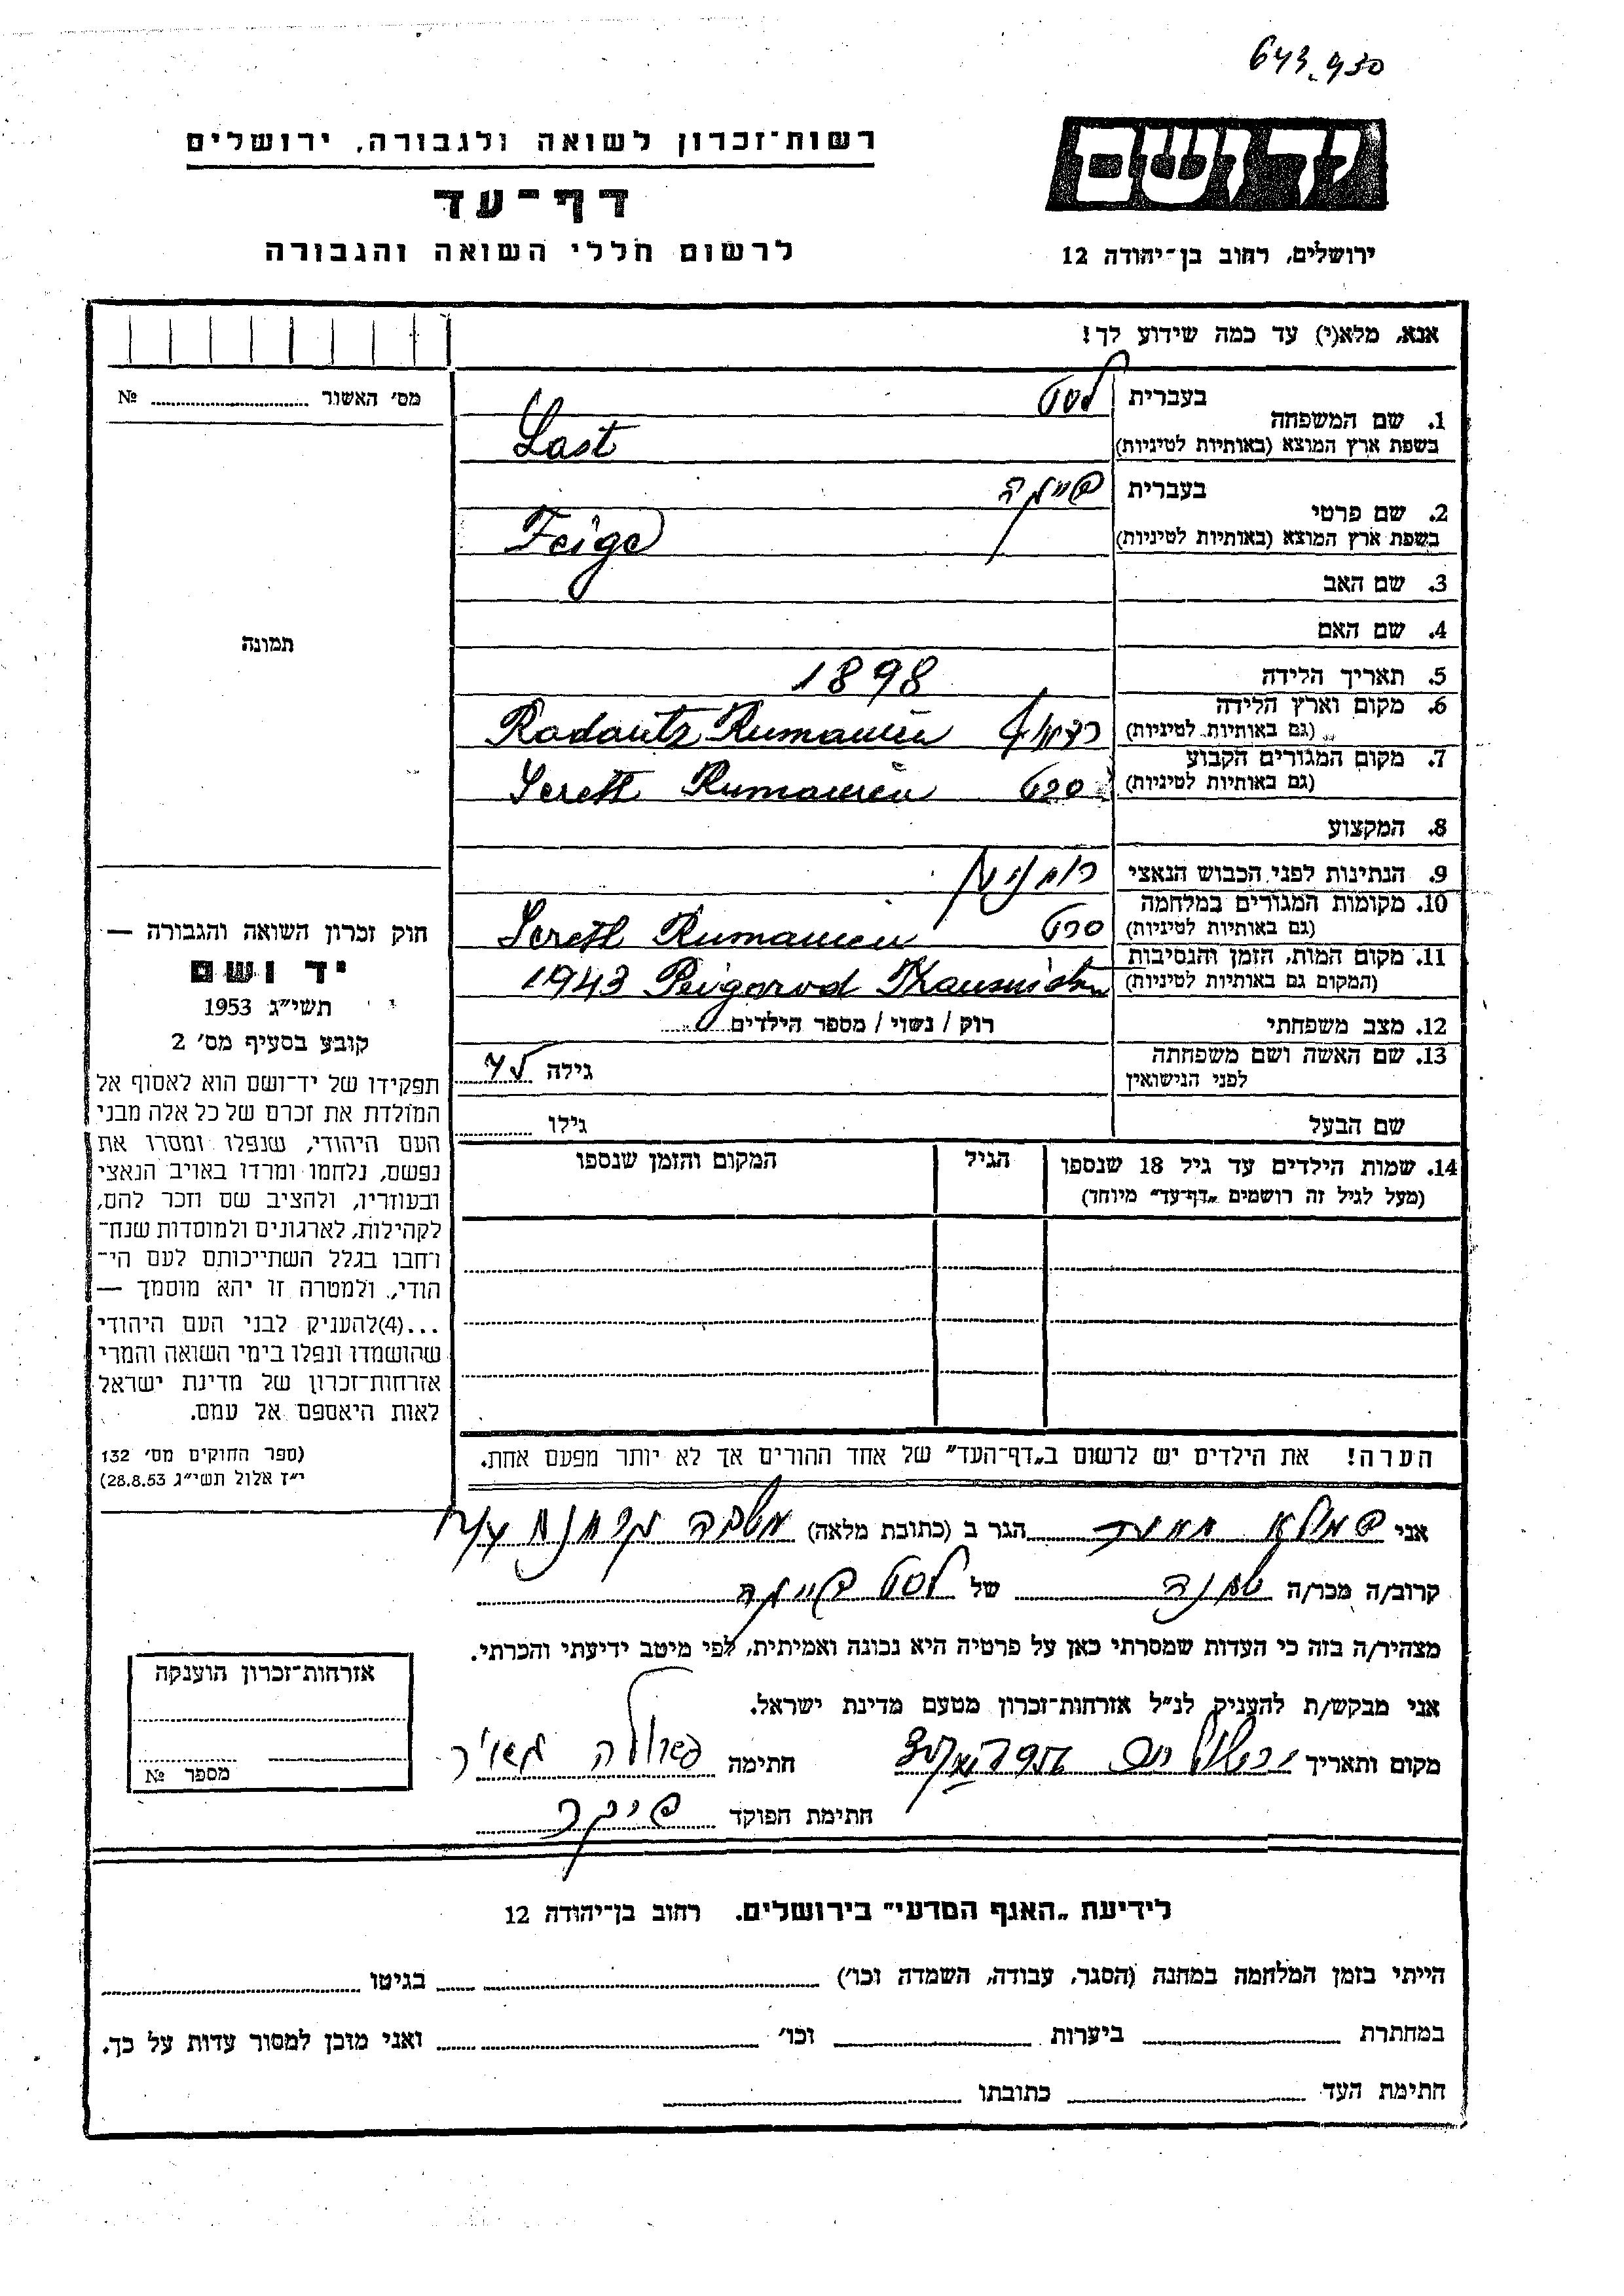 643.930
רשות־זכרון לשואה ולגבורה, ירושלים
דף־עד
לרשום חללי השואה והגבורה
יד ושם
ירושלים, רחוב בן־יהודה 12
אנא, מלא(י) עד כמה שידוע לך!
מס׳ האשור № 
תמונה
חוק זכרון השואה והגבורה —
יד ושם
תשי״ג 1953
קובע בסעיף מס׳ 2
תפקידו של יד־ושם הוא לאסוף אל
המולדת את זכרם של כל אלה מבני
העם היהודי, שנפלו ומסרו את
נפשם, נלחמו ומרדו באויב הנאצי
ובעוזריו, ולהציב שם וזכר להם,
לקהילות, לארגונים ולמוסדות שנח־
רחבו בגלל השתייכותם לעם הי־
הודי, ולמטרה זו יהא מוסמך —
...(4)להעניק לבני העם היהודי
שהושמדו ונפלו בימי השואה והמרי
אזרחות־זכרון של מדינת ישראל
לאות היאספם אל עמם.
(ספר החוקים מס׳ 132
י״ז אלול תשי״ג 28.8.53)
1. שם המשפחה בעברית לסט
בשפת ארץ המוצא (באותיות לטיניות) Last
2. שם פרטי בעברית פייגה
בשפת ארץ המוצא (באותיות לטיניות) Feige
3. שם האב
4. שם האם
5. תאריך הלידה 1898
6. מקום וארץ הלידה
(גם באותיות לטיניות) רדאוץ Radautz Rumanien
7. מקום המגורים הקבוע
(גם באותיות לטיניות) סרט Sereth Rumanien
8. המקצוע
9. הנתינות לפני הכבוש הנאצי רומנית
10. מקומות המגורים במלחמה
(גם באותיות לטיניות) סרט Sereth Rumanien
11. מקום המות, הזמן והנסיבות
(המקום גם באותיות לטיניות) 1943
12. מצב משפחתי רוק / נשוי / מספר הילדים
13. שם האשה ושם משפחתה
לפני הנישואין גילה 45
שם הבעל גילו
14. שמות הילדים עד גיל 18 שנספו הגיל המקום והזמן שנספו
(מעל לגיל זה רושמים „דף־עד״ מיוחד)
הערה! את הילדים יש לרשום ב„דף־העד״ של אחד ההורים אך לא יותר מפעם אחת.
אני הגר ב (כתובת מלאה)
קרוב/ה מכר/ה שכנה של לסט פייגה
מצהיר/ה בזה כי העדות שמסרתי כאן על פרטיה היא נכונה ואמיתית, לפי מיטב ידיעתי והכרתי.
אני מבקש/ת להעניק לנ״ל אזרחות־זכרון מטעם מדינת ישראל.
מקום ותאריך חתימה
חתימת הפוקד
אזרחות־זכרון הוענקה
מספר №
לידיעת „האגף המדעי״ בירושלים. רחוב בן־יהודה 12
הייתי בזמן המלחמה במחנה (הסגר, עבודה, השמדה וכו׳) בגיטו
במחתרת ביערות וכו׳ ואני מוכן למסור עדות על כך.
חתימת העד כתובתו